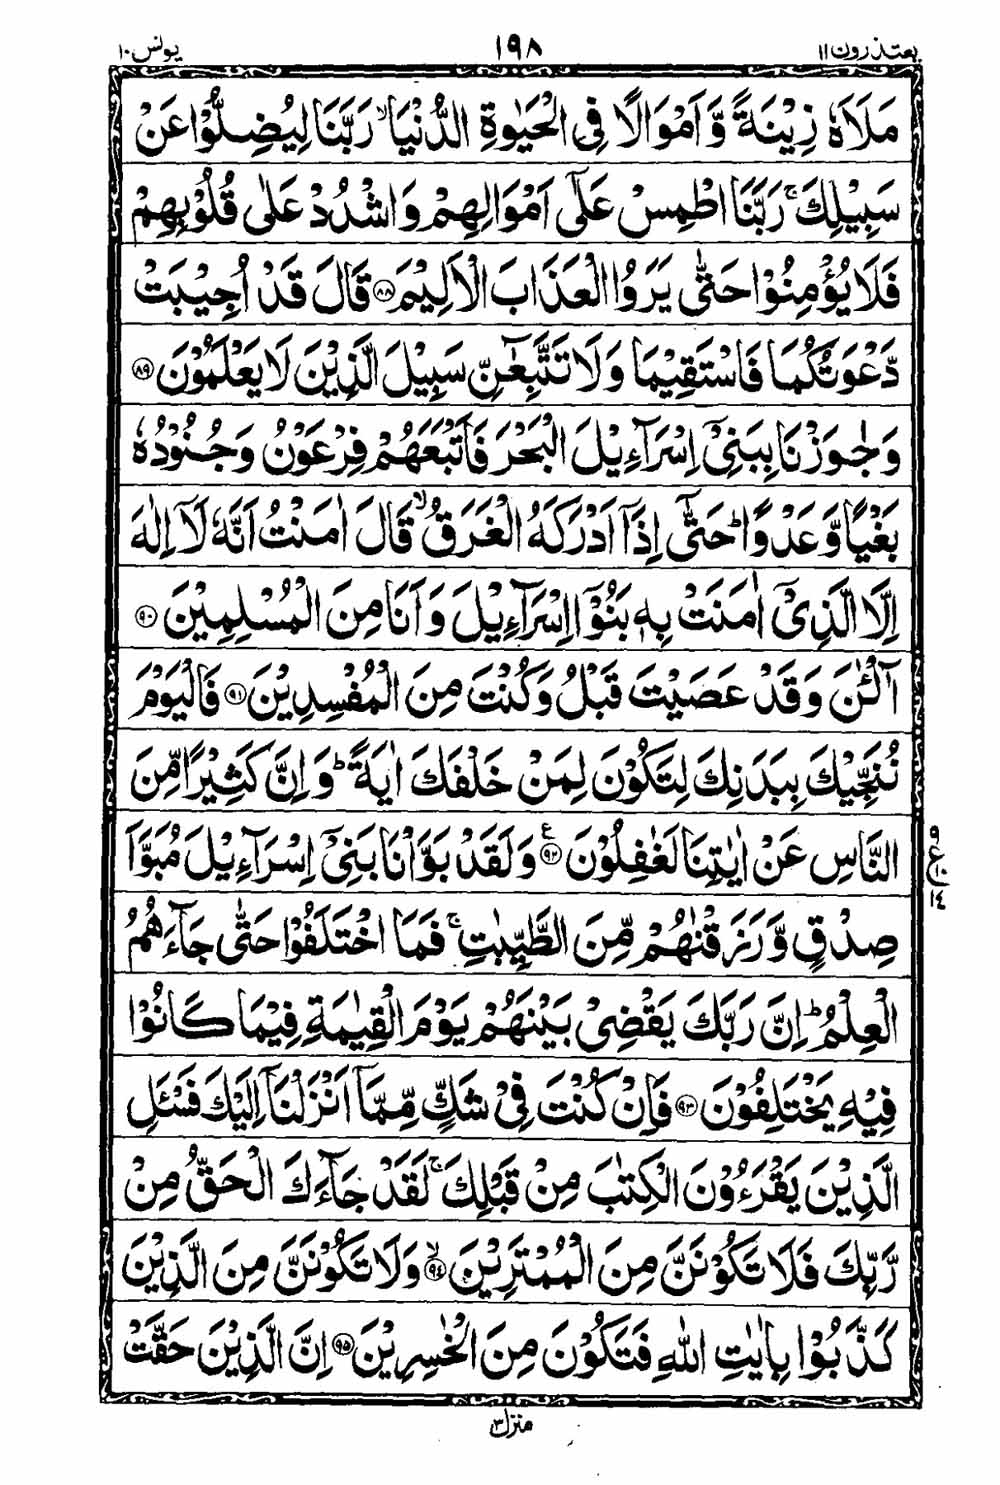 یعتذرون ۱۱ ۱۹۸ یونس ۱۰
مَلَاَهٗ زِيْنَةً وَّاَمْوَالًا فِى الْحَيٰوةِ الدُّنْيَا ۙ رَبَّنَا لِيُضِلُّوْا عَنْ
سَبِيْلِكَ ۚ رَبَّنَا اطْمِسْ عَلٰٓى اَمْوَالِهِمْ وَاشْدُدْ عَلٰى قُلُوْبِهِمْ
فَلَا يُؤْمِنُوْا حَتّٰى يَرَوُا الْعَذَابَ الْاَلِيْمَ ﴿۸۸﴾ قَالَ قَدْ اُجِيْبَتْ
دَّعْوَتُكُمَا فَاسْتَقِيْمَا وَلَا تَتَّبِعٰٓنِّ سَبِيْلَ الَّذِيْنَ لَا يَعْلَمُوْنَ ﴿۸۹﴾
وَجٰوَزْنَا بِبَنِىْٓ اِسْرَآءِيْلَ الْبَحْرَ فَاَتْبَعَهُمْ فِرْعَوْنُ وَجُنُوْدُهٗ
بَغْيًا وَّعَدْوًا ؕ حَتّٰٓى اِذَآ اَدْرَكَهُ الْغَرَقُ ۙ قَالَ اٰمَنْتُ اَنَّهٗ لَآ اِلٰهَ
اِلَّا الَّذِىْٓ اٰمَنَتْ بِهٖ بَنُوْٓا اِسْرَآءِيْلَ وَاَنَا مِنَ الْمُسْلِمِيْنَ ﴿۹۰﴾
آٰلْـٰٔنَ وَقَدْ عَصَيْتَ قَبْلُ وَكُنْتَ مِنَ الْمُفْسِدِيْنَ ﴿۹۱﴾ فَالْيَوْمَ
نُنَجِّيْكَ بِبَدَنِكَ لِتَكُوْنَ لِمَنْ خَلْفَكَ اٰيَةً ؕ وَاِنَّ كَثِيْرًا مِّنَ
النَّاسِ عَنْ اٰيٰتِنَا لَغٰفِلُوْنَ ﴿۹۲﴾ ع وَلَقَدْ بَوَّاْنَا بَنِىْٓ اِسْرَآءِيْلَ مُبَوَّاَ
۹ ع ۱۰ ۱۴
صِدْقٍ وَّرَزَقْنٰهُمْ مِّنَ الطَّيِّبٰتِ ۚ فَمَا اخْتَلَفُوْا حَتّٰى جَآءَهُمُ
الْعِلْمُ ؕ اِنَّ رَبَّكَ يَقْضِىْ بَيْنَهُمْ يَوْمَ الْقِيٰمَةِ فِيْمَا كَانُوْا
فِيْهِ يَخْتَلِفُوْنَ ﴿۹۳﴾ فَاِنْ كُنْتَ فِىْ شَكٍّ مِّمَّآ اَنْزَلْنَآ اِلَيْكَ فَسْـَٔلِ
الَّذِيْنَ يَقْرَءُوْنَ الْكِتٰبَ مِنْ قَبْلِكَ ۚ لَقَدْ جَآءَكَ الْحَقُّ مِنْ
رَّبِّكَ فَلَا تَكُوْنَنَّ مِنَ الْمُمْتَرِيْنَ ﴿۹۴﴾ ۙ وَلَا تَكُوْنَنَّ مِنَ الَّذِيْنَ
كَذَّبُوْا بِاٰيٰتِ اللّٰهِ فَتَكُوْنَ مِنَ الْخٰسِرِيْنَ ﴿۹۵﴾ اِنَّ الَّذِيْنَ حَقَّتْ
منزل ۳